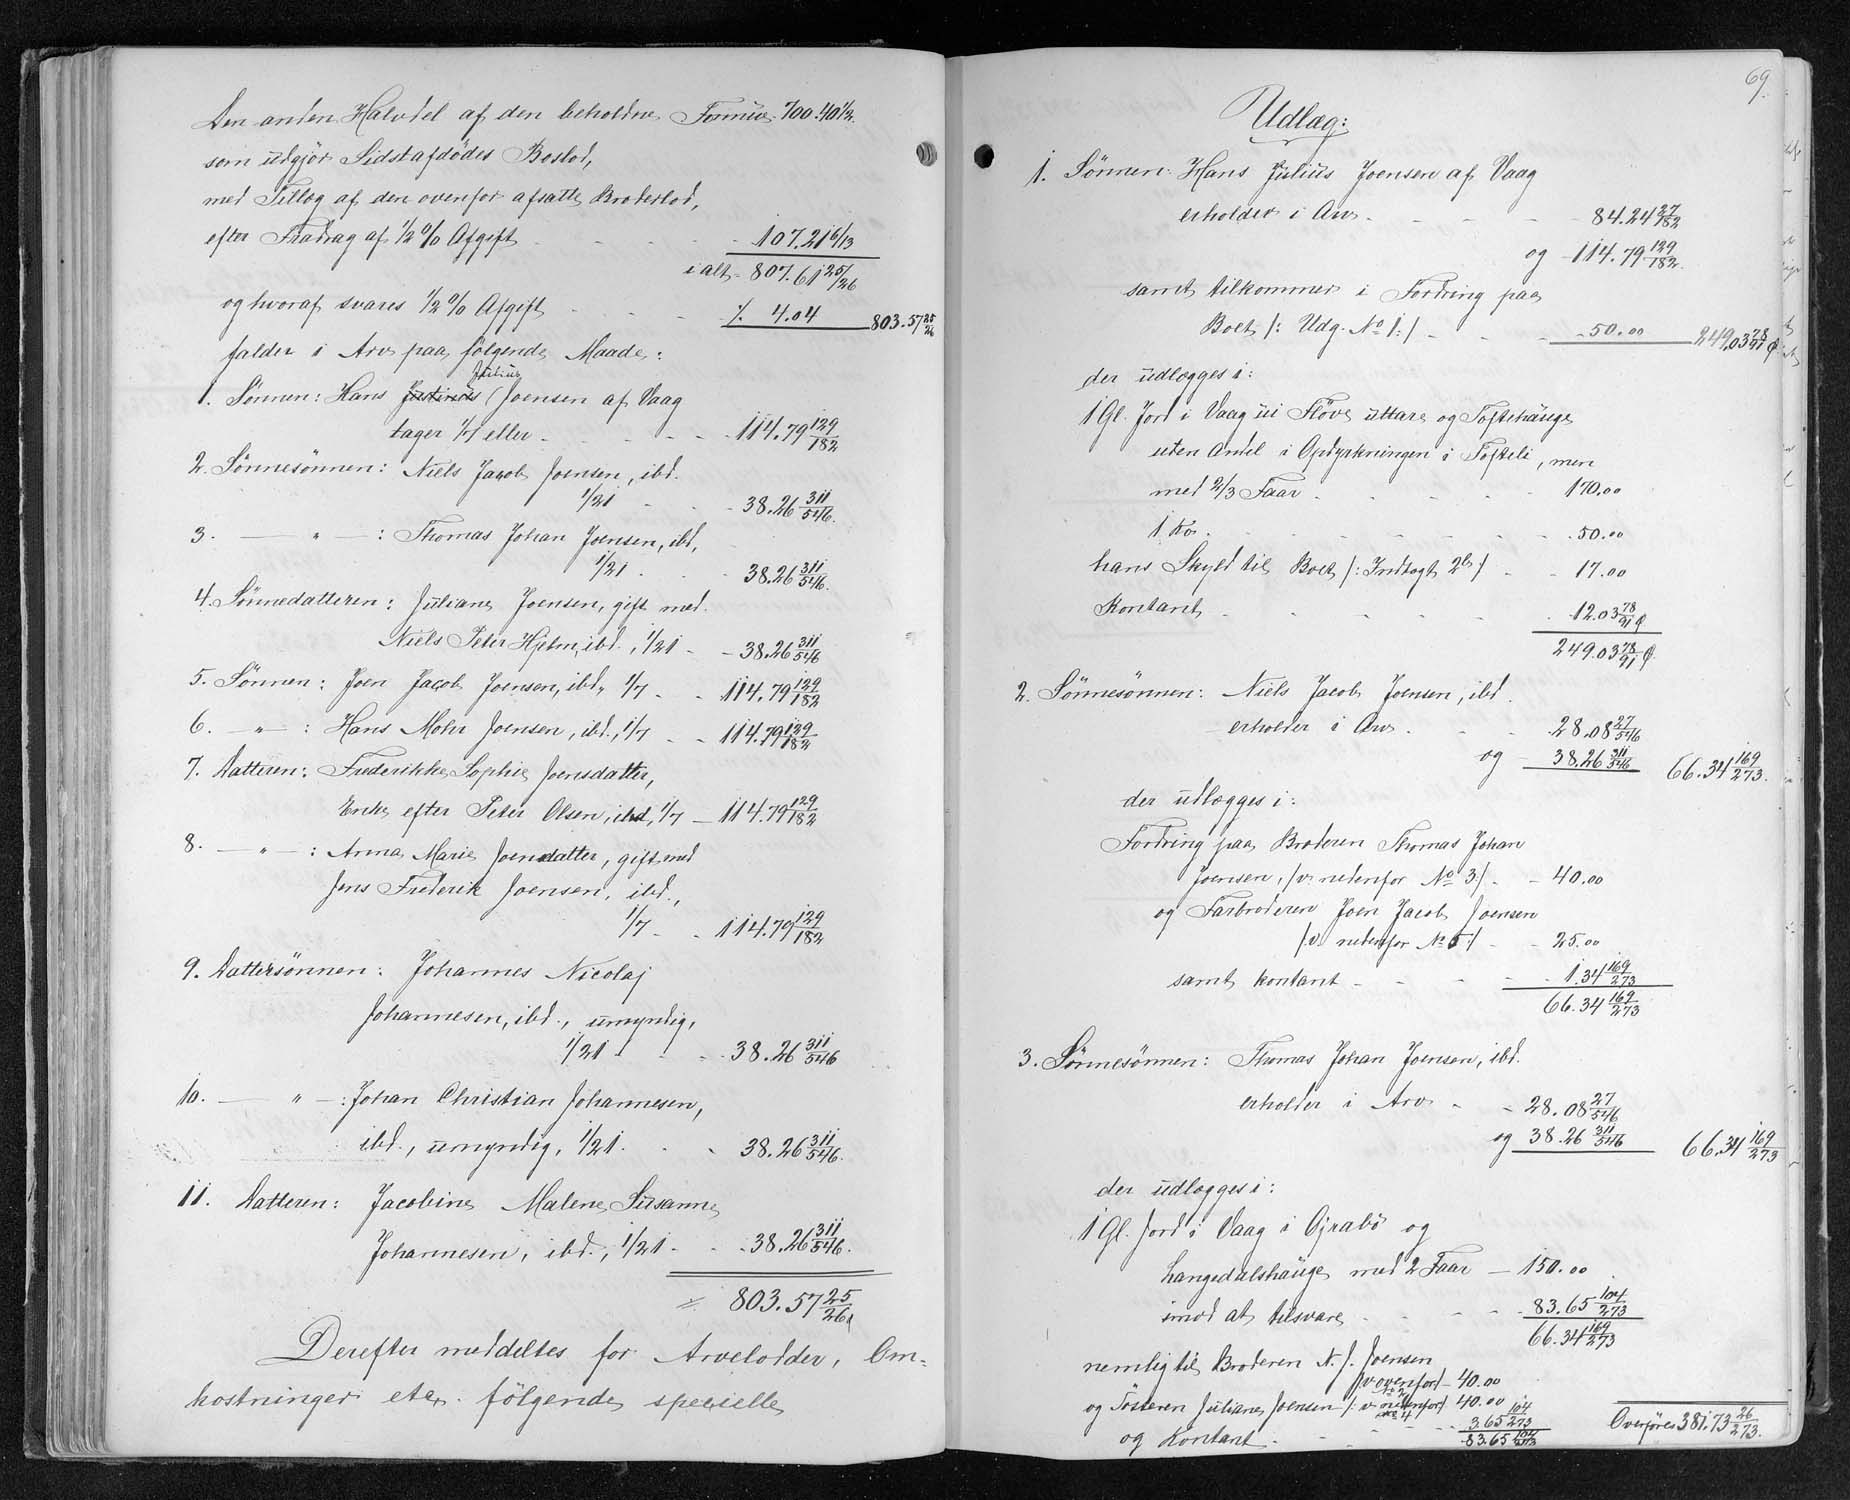 Den anden Halvdel af den beholdne Formue 700.40 1/2.
som udgjør Sidstafdødes Boslod,
med Tillæg af den ovenfor afsatte Broderlod,
efter Fradrag af 1/2 % Afgift - - - 107.21 6/13
i alt - 807.61 25/26
og hvoraf svares 1/2 % Afgift - - - ./. 4.04 803.57 25/26
falder i Arv paa følgende Maade:
Julius
1. Sønnen: Hans Justinus Joensen af Vaag
tager 1/7 eller - - - - 114.79 129/182
2. Sønnesønnen: Niels Jacob Joensen, ibd.
1/21 - - - 38.26 311/546.
3. — " — : Thomas Johan Joensen, ibd,
1/21 - - - 38.26 311/546.
4. Sønnedatteren: Juliane Joensen, gift med
Niels Peter Hjelm, ibd., 1/21 - - 38.26 311/546
5. Sønnen: Joen Jacob Joensen, ibd, 1/7 - - 114.79 129/182
6. — " — : Hans Mohr Joensen, ibd., 1/7 - - 114.79 129/182
7. Datteren: Frederikke Sophie Joensdatter,
Enke efter Peter Olsen, ibd, 1/7 - 114.79 129/182
8. — " — : Anna Marie Joensdatter, gift med
Jens Frederik Joensen, ibd.,
1/7 - - 114.79 129/182
9. Dattersønnen: Johannes Nicolaj
Johannesen, ibd., umyndig,
1/21 - - - 38.26 311/546
10. — " — : Johan Christian Johannesen,
ibd., umyndig, 1/21 - - - 38.26 311/546.
11. Datteren: Jacobine Malene Susanne
Johannesen, ibd., 1/21 - - - 38.26 311/546.
803.57 25/26
Derefter meddeltes for Arvelodder, Om=
kostninger etc. følgende specielle
69.
Udlæg:
1. Sønnen: Hans Julius Joensen af Vaag
erholder i Arv - - - - 84.24 27/182
og - 114.79 129/182.
samt tilkommer i Fordring paa
Boet /: Udg. No 1:/ - - - 50.00 249.03 78/91 Ø
der udlægges i:
1 Gl. Jord i Vaag ui Fløve uttare og Toftehauge
uden Andel i Opdyrkningen i Tofteli, men
med 2/3 Faar - - - - 170.00
1 Ko - - - - - 50.00
hans Skyld til Boet /: Indtægt 2b:/ - - 17.00
Kontant - - - - - 12.03 78/91 Ø
249.03 78/91 Ø.
2. Sønnesønnen: Niels Jacob Joensen, ibd.
erholder i Arv - - - 28.08 27/546
og - 38.26 311/546 66.34 169/273.
der udlægges i:
Fordring paa Broderen Thomas Johan
Joensen, /v: nedenfor No 3:/ - - 40.00
og Farbroderen Joen Jacob Joensen
/v. nedenfor No 5:/ - - 25.00
samt kontant - - - - 1.34 169/273
66.34 169/273
3. Sønnesønnen: Thomas Johan Joensen, ibd.
erholder i Arv - - 28.08 27/546
og 38.26 311/546 66.34 169/273
der udlægges i:
1 Gl. Jord i Vaag i Gjrabø og
Langedalshauge med 2 Faar - 150.00
imod at tilsvare - - - 83.65 104/273
66.34 169/273
nemlig til Broderen N. J. Joensen
/v ovenfor/ - 40.00
No 2
og Søsteren Juliane Joensen /: v nedenfor/ 40.00
No 4
og Kontant - - - - 3.65 104/273
83.65 104/273
Overføres 381.73 26/273.